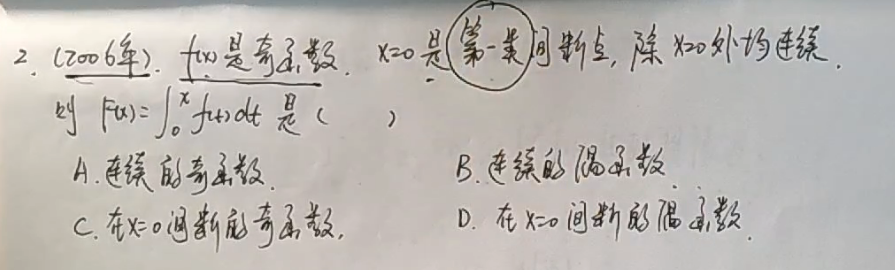 2. (2006年). f(x)是奇函数. x=0是第一类间断点, 除x=0外均连续.
则 F(x)=∫₀ˣf(t)dt是( )
A. 连续的奇函数. B. 连续的偶函数.
C. 在x=0间断的奇函数. D. 在x=0间断的偶函数.